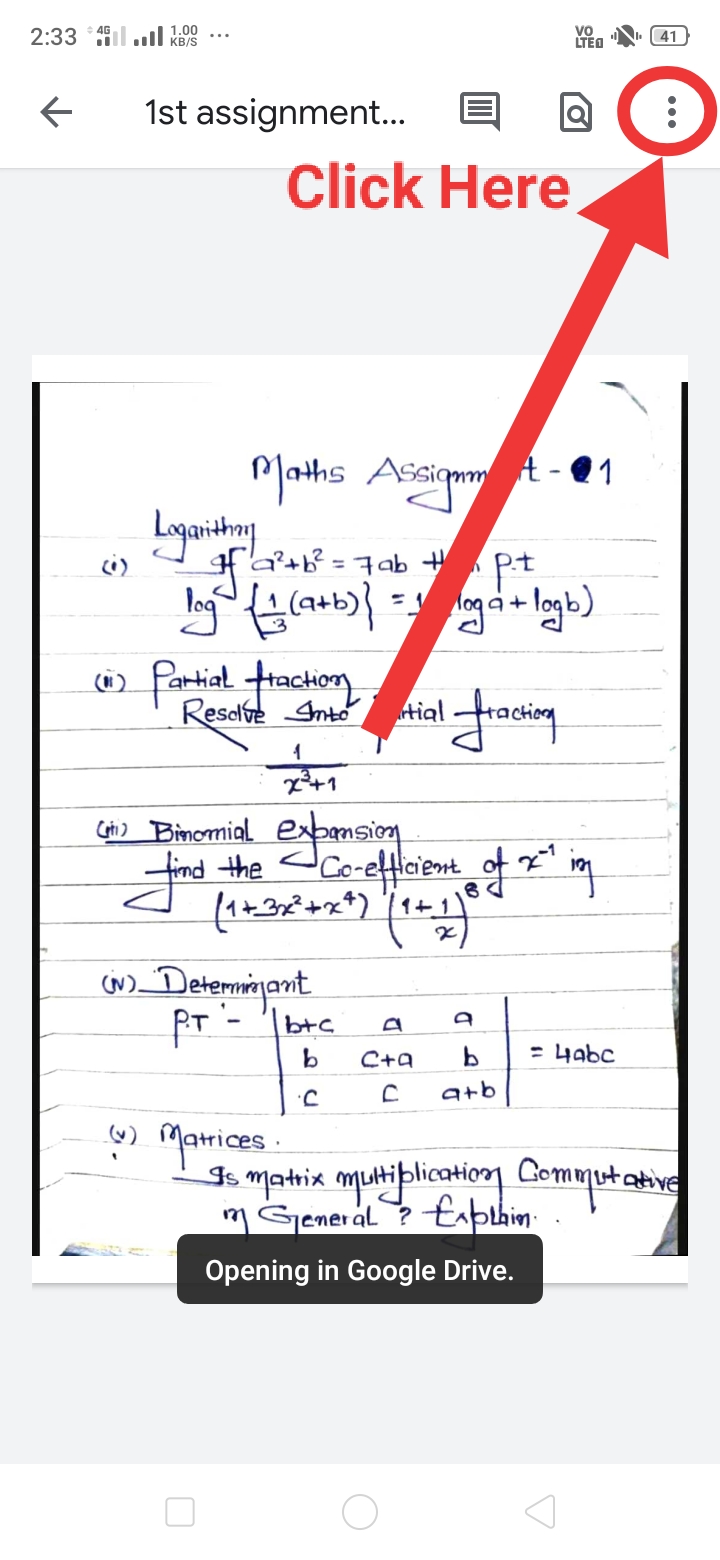 2:33 4G 1.00 KB/S ... VO LTE 41
1st assignment...
Click Here
Maths Assignm t - 1
Logarithm
(i) If a²+b² = 7ab p.t
log {1/3 (a+b)} = 1 log a + log b)
(ii) Partial fraction
Resolve Into rtial fraction
1
x³+1
(iii) Binomial expansion
find the Co-efficient of x⁻¹ in
(1+3x²+x⁴) (1+1/x)⁸
(iv) Determinant
P.T - | b+c a a |
| b c+a b | = 4abc
| c c a+b |
(v) Matrices.
Is matrix multiplication Commutative
in General ? Explain.
Opening in Google Drive.